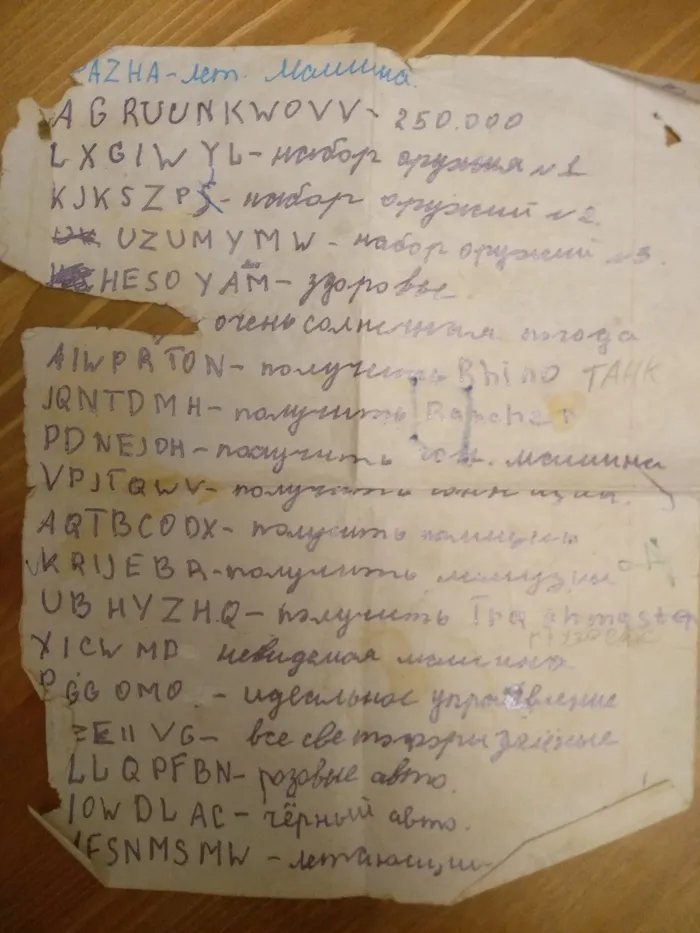 AZHA - лет. Машина.
AGRUUNKWOVV - 250.000
LXGIWYL - набор оружия №1
KJKSZPS - набор оружий №2.
UZUMYMW - набор оружий №3.
HESOYAM - здоровье
очень солнечная погода
AIWPRTON - получить Rhino ТАНК
JQNTDMH - получить Rancher
PDNEJOH - получить гон. машина
VPJTQWV - получить
AQTBCODX - получить
KRIJEBR - получить
UBHYZHQ - получить
YICWMD невидемая машина
PGGOMO - идеальное управление
ZEIIVG - все светофоры зелёные
LLQPFBN - розовые авто.
IOWDLAC - чёрный авто.
IFSNMSMW - летающий